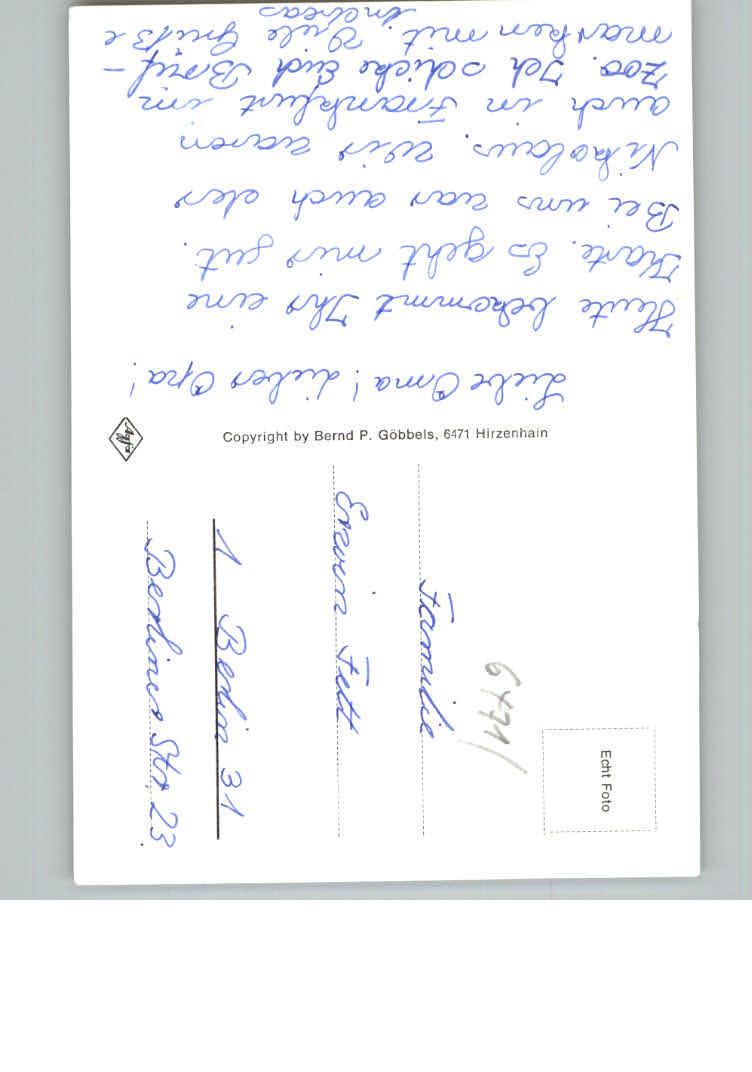 Liebe Oma! Lieber Opa!
Heute bekommt Ihr eine
Karte. Es geht mir gut.
Bei uns war auch der
Nikolaus. Wir waren
auch in Frankfurt im
Zoo. Ich schicke Euch Brief-
marken mit. Viele Grüße
Andreas
Agfa
Copyright by Bernd P. Göbbels, 6471 Hirzenhain
Echt Foto
6471/
Familie
Erwin Fett
1 Berlin 31
Berliner Str. 23.